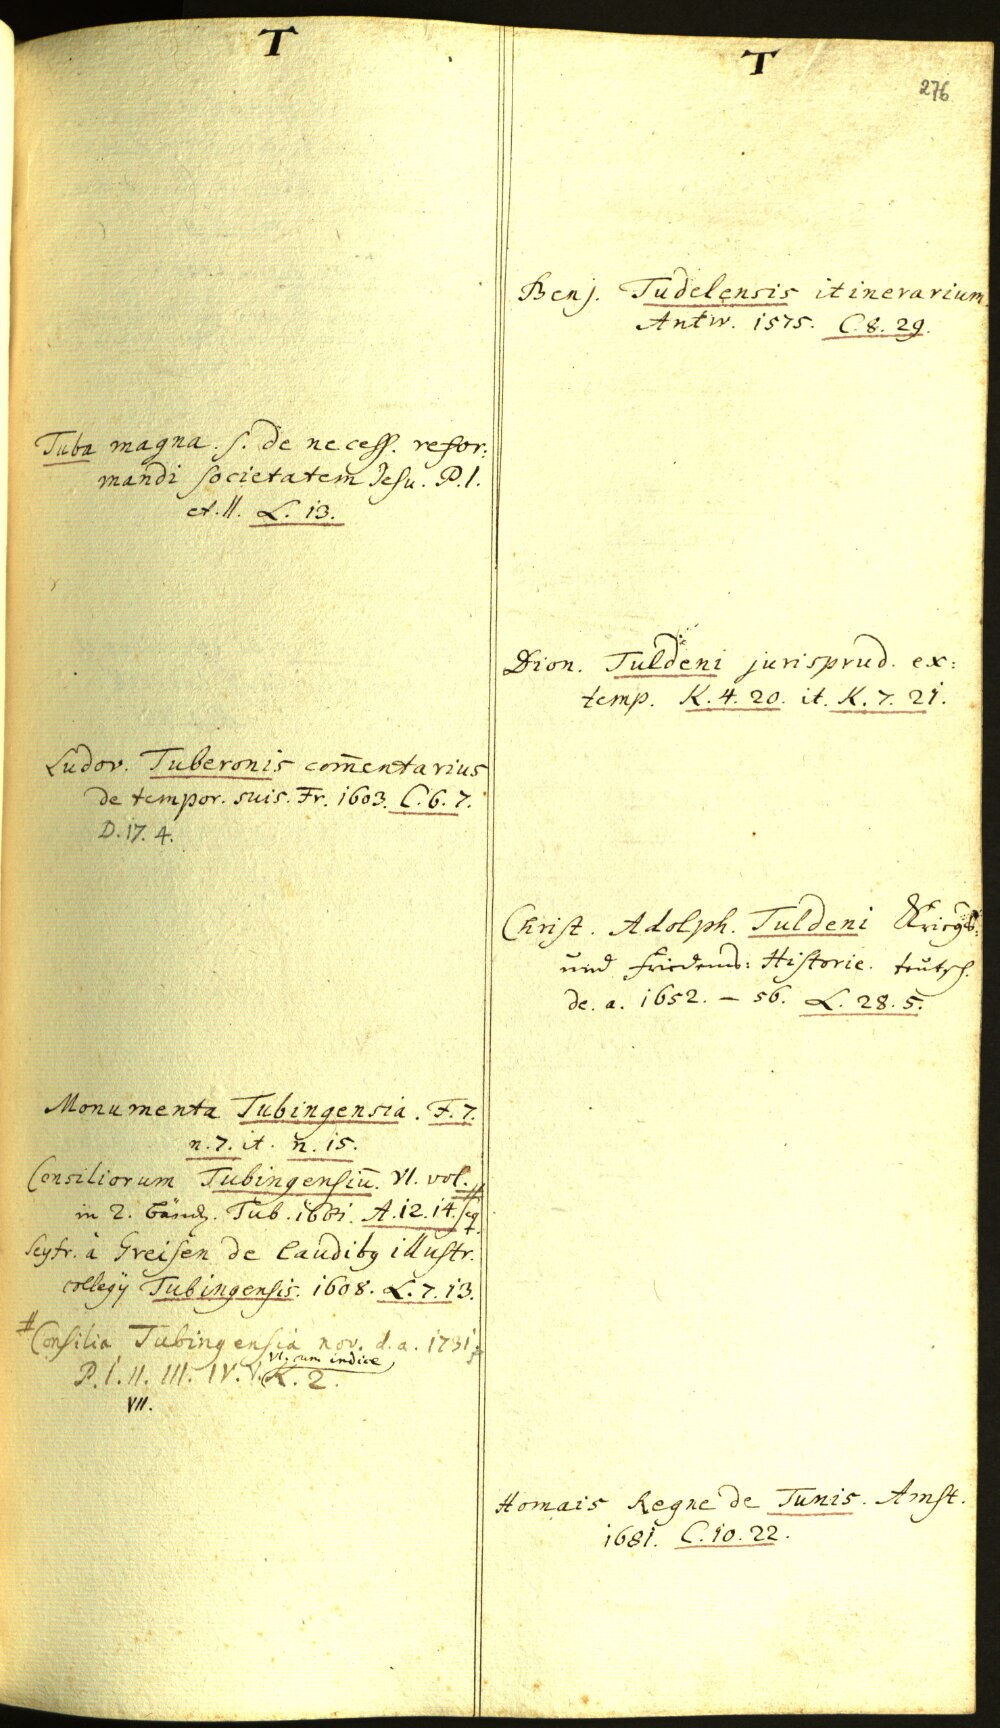 T
Tuba magna. s. de necess. refor:
mandi societatem Jesu. P. I.
et. II. L. 13.
Ludov. Tuberonis com̄entarius
de tempor. suis. Fr. 1603. C. 6. 7.
D. 17. 4.
Monumenta Tubingensia. F. 7.
n. 7. it. n. 15.
Consiliorum Tubingensiū. VI. vol. #
in 2. bänd. Tub. 1661. A. 12. 14. seq.
Seyfr. à Greisen de laudibq illustr.
collegÿ Tubingensis. 1608. L. 7. 13.
# Consilia Tubingensia nov. d. a. 1731.
P. I. II. III. IV. V. VI. cum indice K. 2.
VII.
T
276
Benj. Tudelensis itinerarium
Antw. 1575. C. 8. 29.
Dion. Tuldeni jurisprud. ex:
temp. K. 4. 20. it. K. 7. 21.
Christ. Adolph. Tuldeni Kriegs:
und Friedens: Historie. teutsch.
de. a. 1652. – 56. L. 28. 5.
Homais Regne de Tunis. Amst.
1681. C. 10. 22.